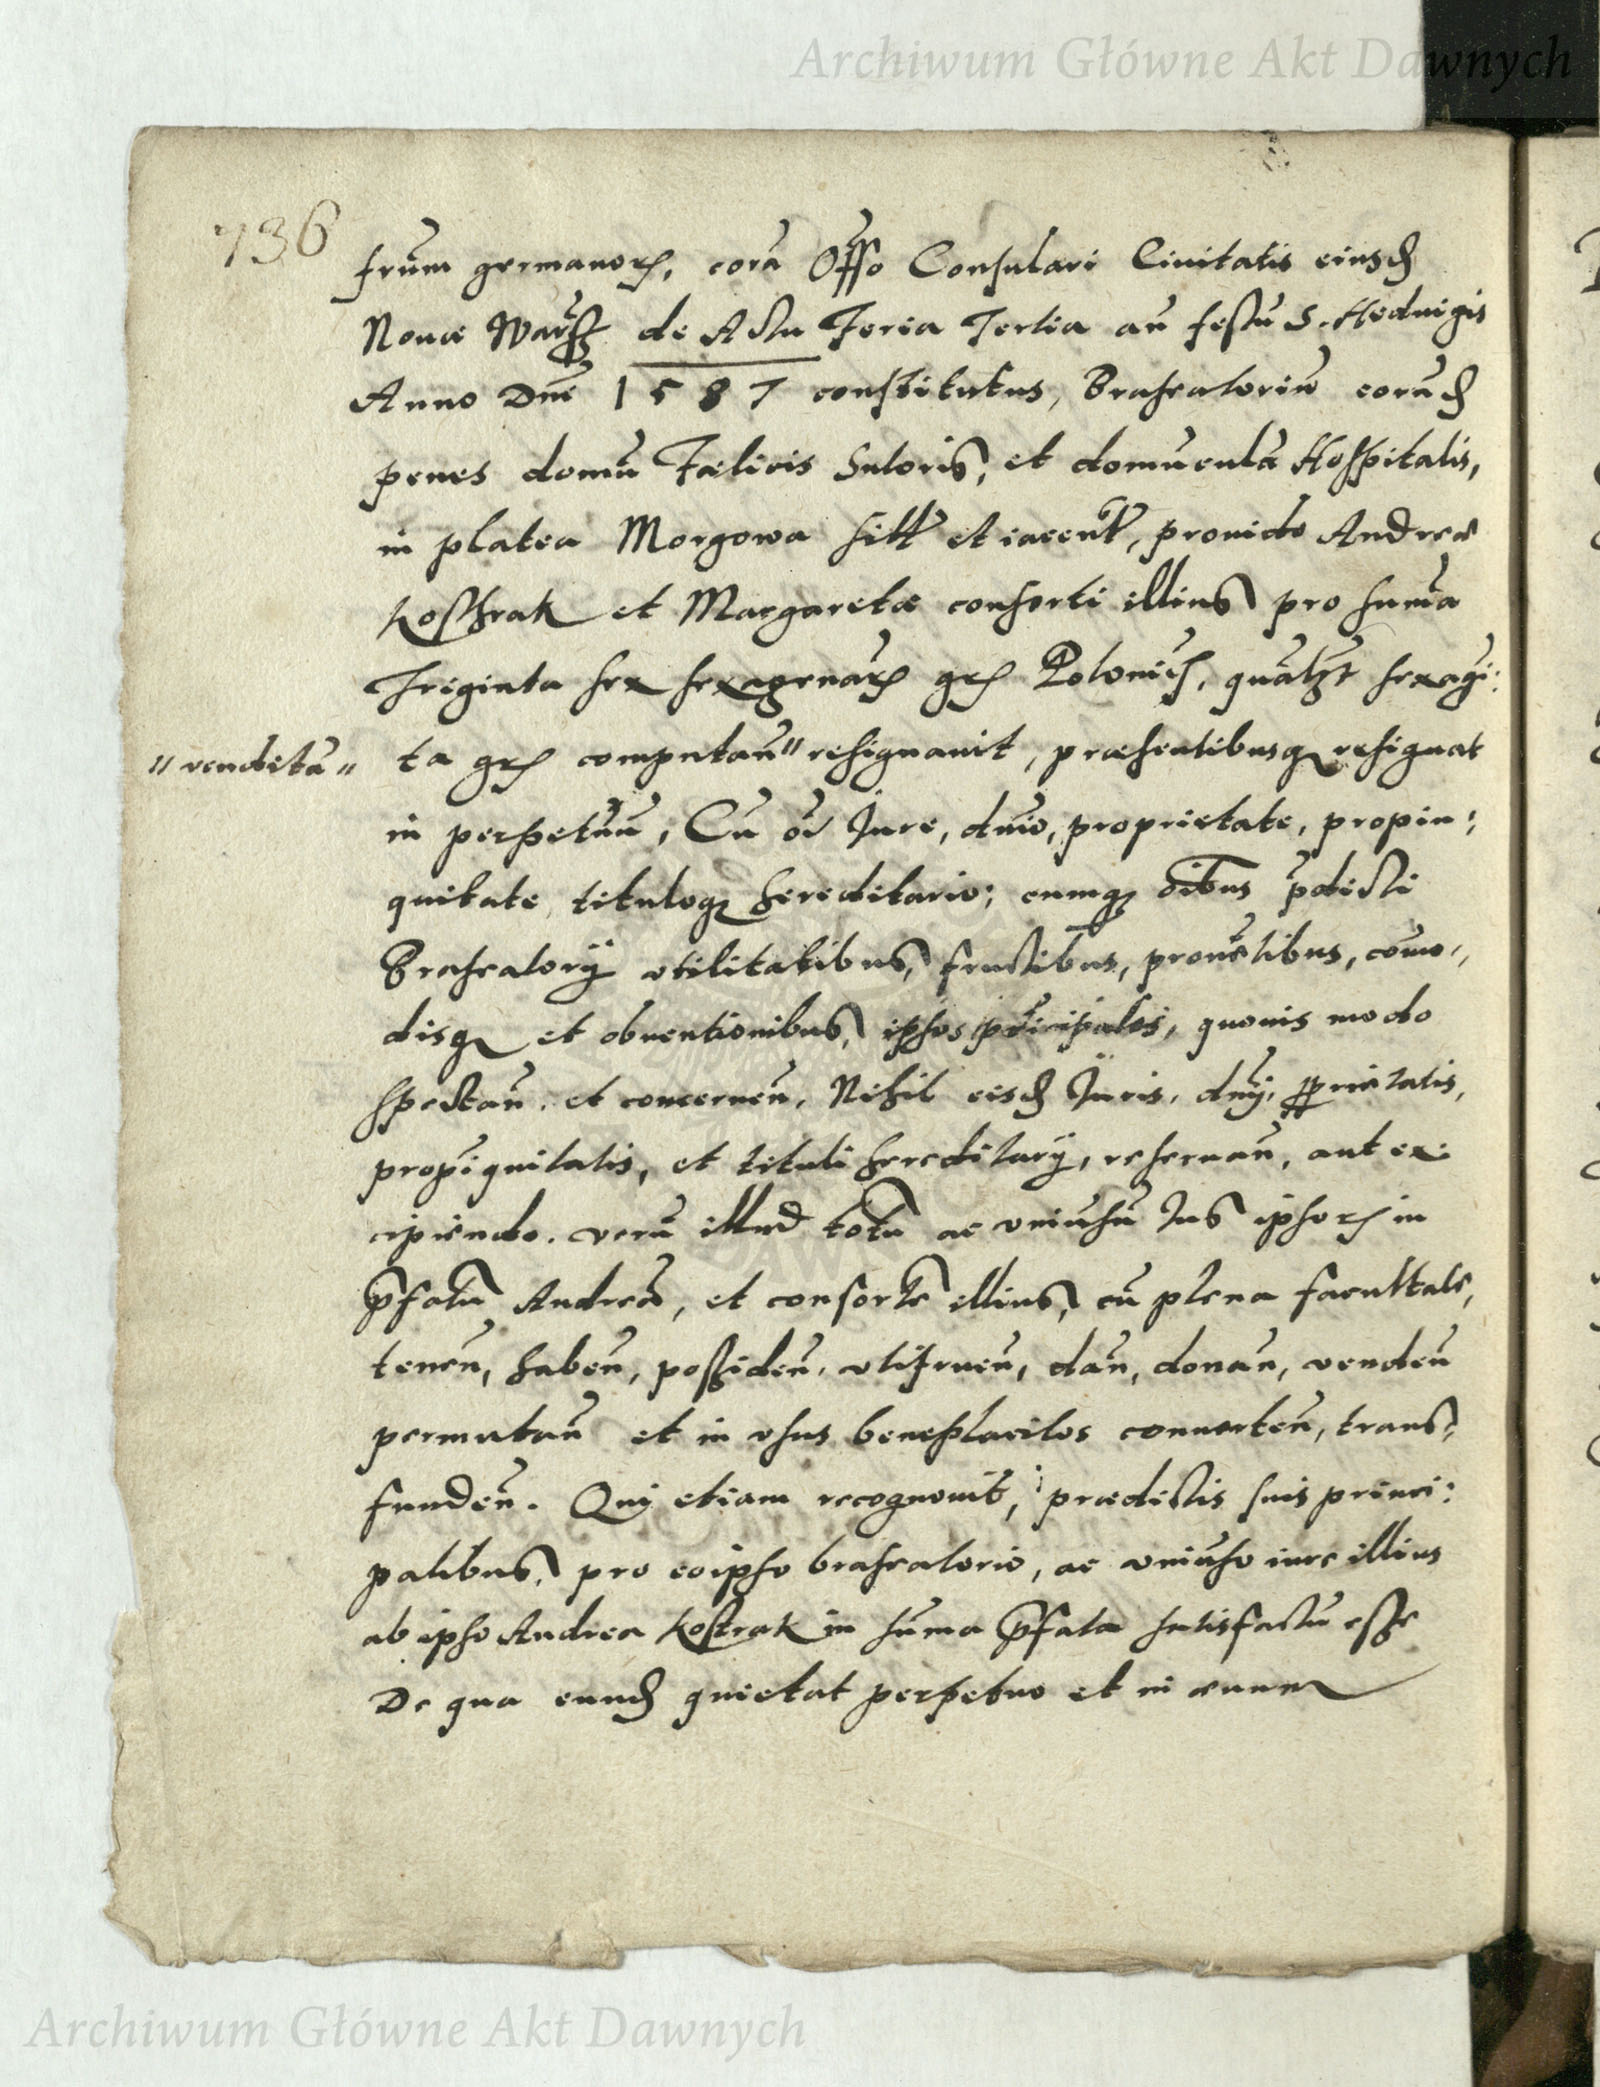 Archiwum Główne Akt Dawnych
736
frũm germanorꝝ, corã Offo Consulari Ciuitatis eiusd
Nouæ Warß de Actu Feria Tertia añ festũ S. Heduigis
Anno Dnĩ 1587 constitutus, Braseatoriũ eorũd
penes domũ Fælicis Sutoris, et domũculã Hospitalis,
in platea Morgowa sitt et iacent, prouido Andreæ
Koschrak et Margaretæ consorti illius pro suma
Triginta sex sexagenarꝝ grꝝ Polonic, qualbt sexagi:
"vendita" ta grꝝ computañ" resignauit, præsentibusqꝫ resignat
in perpetuũ, Cũ oĩ Jure, dnio, proprietate, propin:
quitate, tituloqꝫ hereditario; cumqꝫ oibus pdicti
Braseatorÿ vtilitatibus, fructibus, prouetibus, como:
disqꝫ et obuentionibus, ipsos pricipales, quouis modo
spectañ. et concerneñ, Nihil eisd Juris, dnÿ, ꝓprietatis,
propiquitatis, et tituli hereditarÿ, reseruañ, aut ex:
cipiendo. verũ illud totũ ac vniusũ Jus ipsorꝝ in
pfatũ Andreã, et consortẽ illius, cũ plena facultate,
teneñ, habeñ, possideñ, vtifrueñ, dañ, donañ, vendeñ
permutañ et in vsus beneplacitos conuerteñ, trans:
fundeñ. Qui etiam recognouit, prædictis suis princi:
palibus, pro eoipso braseatorio, ac vniuso iure illius
ab ipso Andrea Kostrak in sũma pfata satisfactũ esse
De qua eund quietat perpetuo et in æuum
Archiwum Główne Akt Dawnych